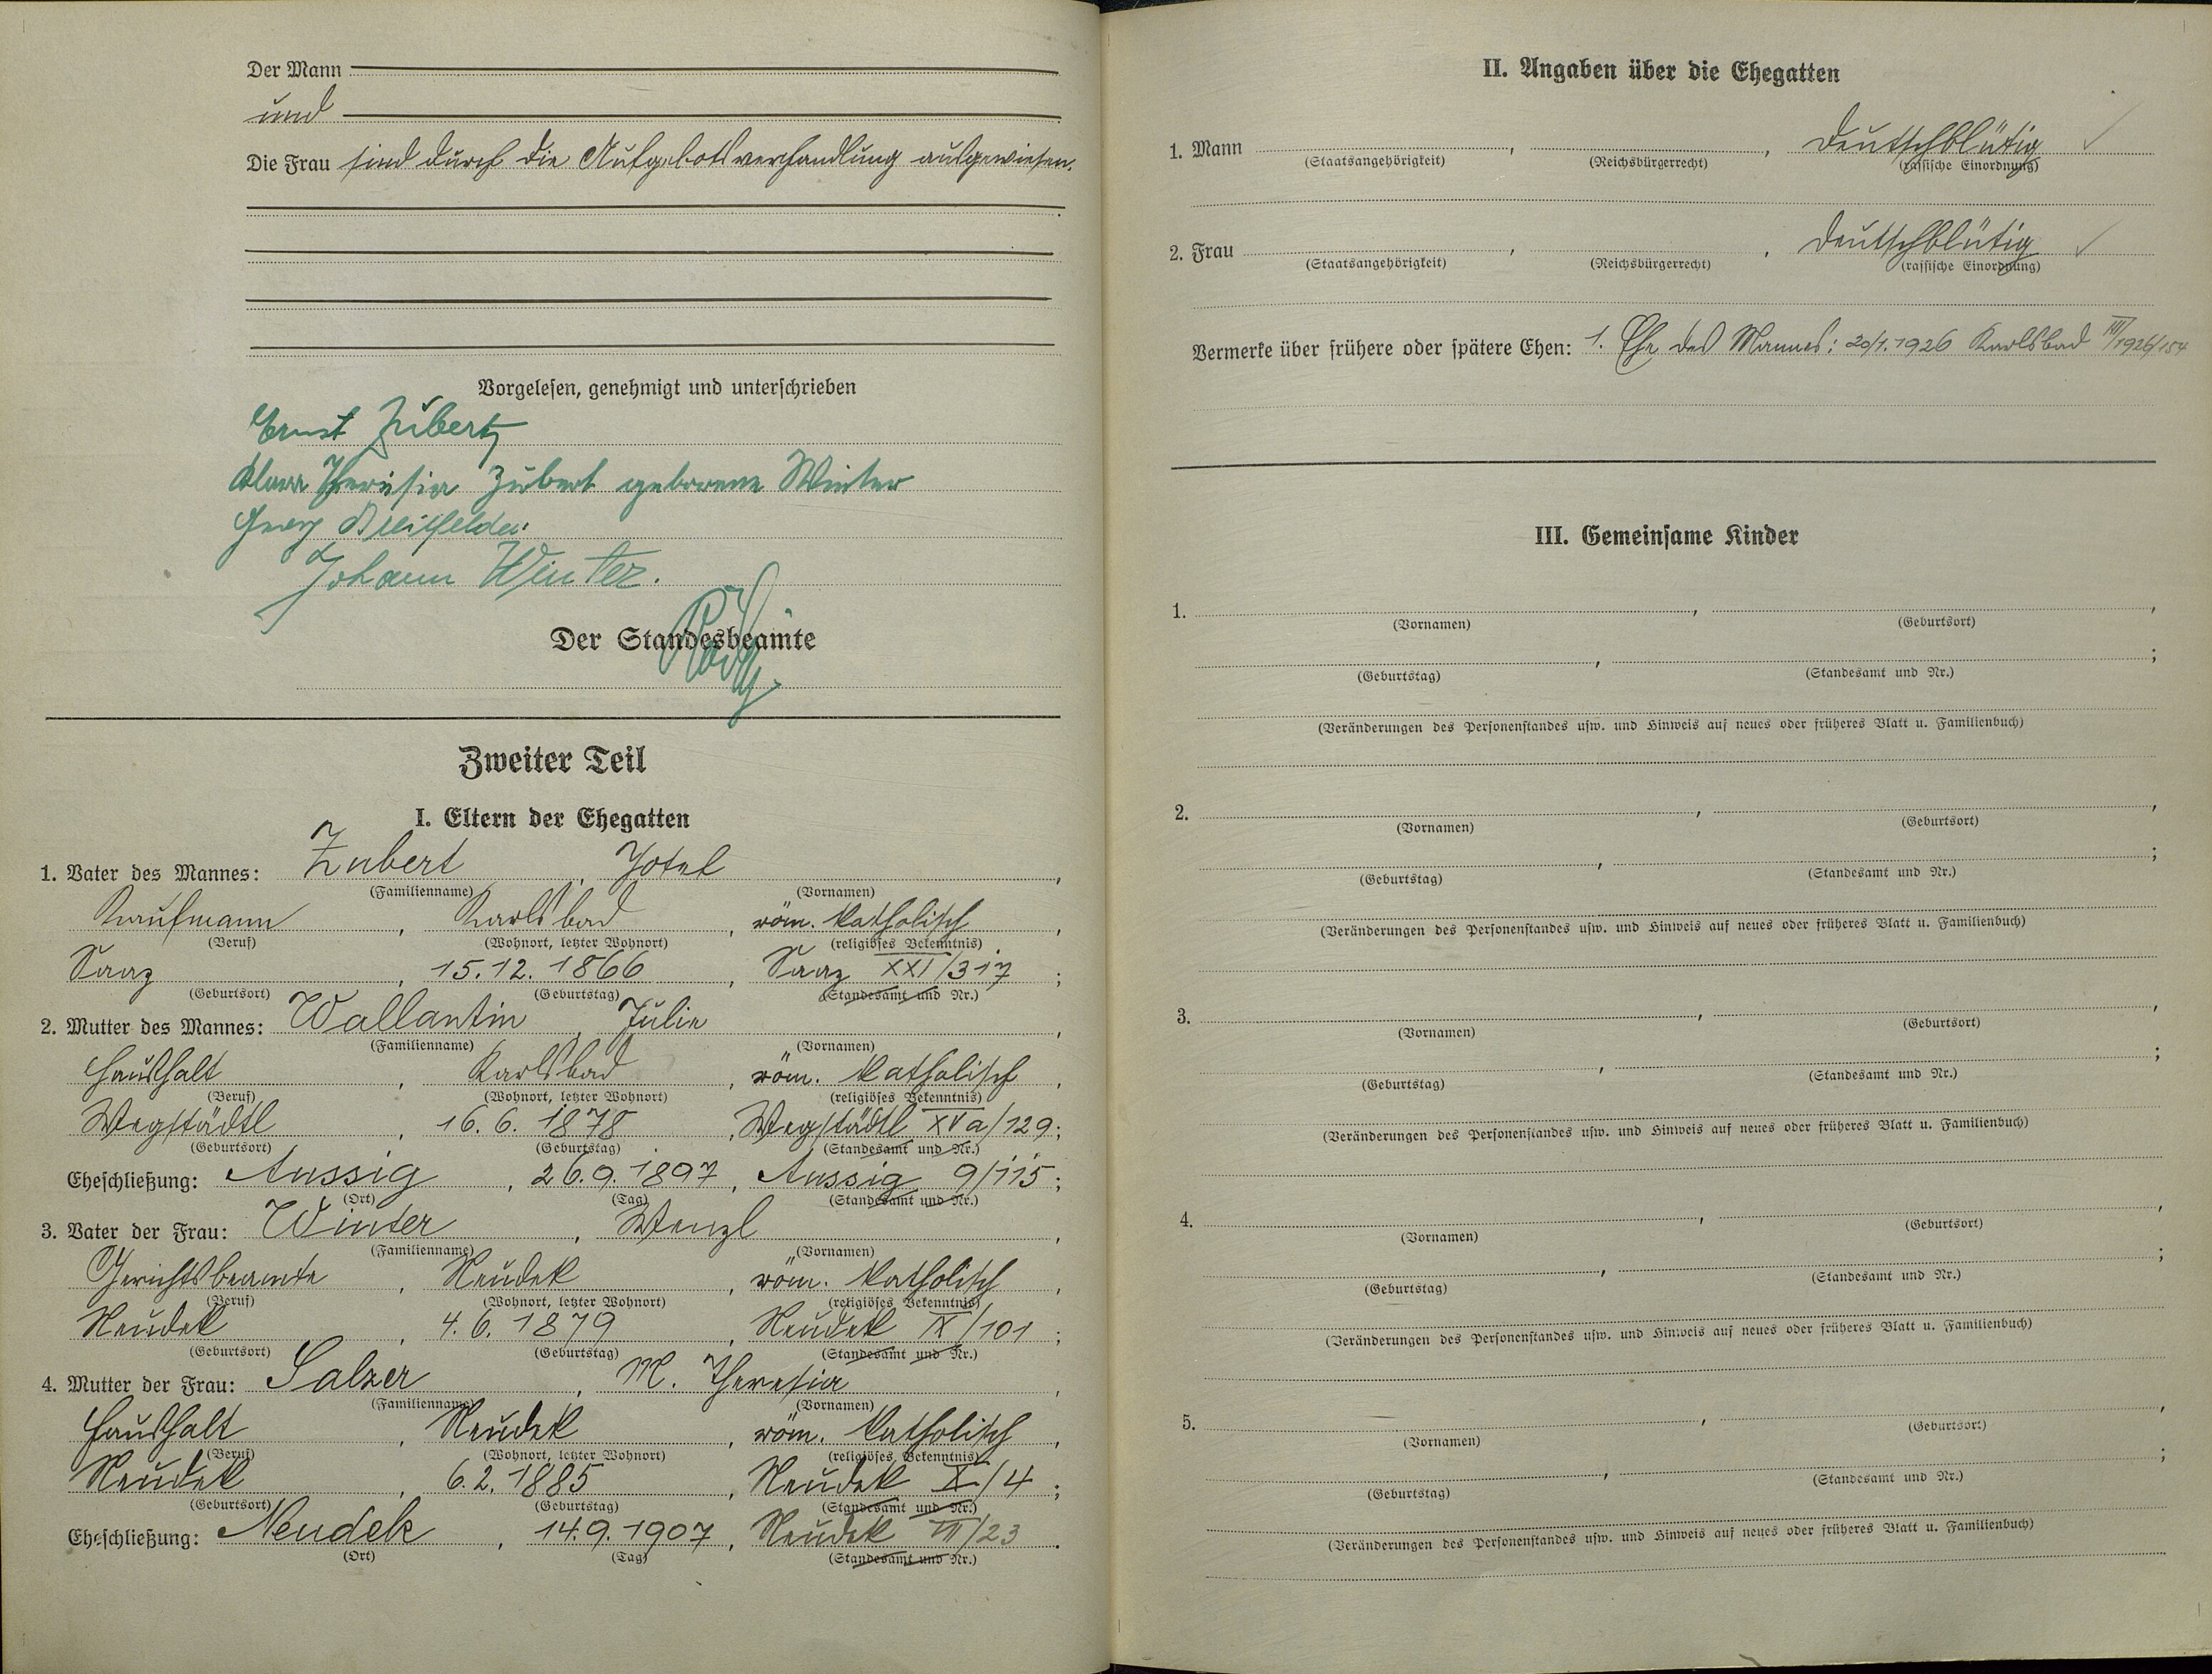 Der Mann
und
Die Frau sind durch die Aufgebotsverhandlung ausgewiesen.
Vorgelesen, genehmigt und unterschrieben
Ernst Zubert
Klara Theresia Zubert geborene Winter
Georg Breitfelder
Johann Winter.
Der Standesbeamte
Zweiter Teil
I. Eltern der Ehegatten
1. Vater des Mannes: Zubert, Josef,
(Familienname) (Vornamen)
Kaufmann, Karlsbad, röm. katholisch,
(Beruf) (Wohnort, letzter Wohnort) (religiöses Bekenntnis)
Saaz, 15.12.1866, Saaz XXI/317;
(Geburtsort) (Geburtstag) (Standesamt und Nr.)
2. Mutter des Mannes: Wallantin, Julie,
(Familienname) (Vornamen)
Haushalt, Karlsbad, röm. katholisch,
(Beruf) (Wohnort, letzter Wohnort) (religiöses Bekenntnis)
Wegstädtl, 16.6.1878, Wegstädtl XVa/129;
(Geburtsort) (Geburtstag) (Standesamt und Nr.)
Eheschließung: Aussig, 26.9.1897, Aussig 9/115;
(Ort) (Tag) (Standesamt und Nr.)
3. Vater der Frau: Winter, Wenzl,
(Familienname) (Vornamen)
Gerichtsbeamte, Neudek, röm. katholisch,
(Beruf) (Wohnort, letzter Wohnort) (religiöses Bekenntnis)
Neudek, 4.6.1879, Neudek IX/101;
(Geburtsort) (Geburtstag) (Standesamt und Nr.)
4. Mutter der Frau: Salzer, M. Theresia,
(Familienname) (Vornamen)
Haushalt, Neudek, röm. katholisch,
(Beruf) (Wohnort, letzter Wohnort) (religiöses Bekenntnis)
Neudek, 6.2.1885, Neudek X/4;
(Geburtsort) (Geburtstag) (Standesamt und Nr.)
Eheschließung: Neudek, 14.9.1907, Neudek VII/23.
(Ort) (Tag) (Standesamt und Nr.)
II. Angaben über die Ehegatten
1. Mann , , Deutschblütig
(Staatsangehörigkeit) (Reichsbürgerrecht) (rassische Einordnung)
2. Frau , , Deutschblütig
(Staatsangehörigkeit) (Reichsbürgerrecht) (rassische Einordnung)
Vermerke über frühere oder spätere Ehen: 1. Ehe des Mannes: 20/1.1926 Karlsbad III/1926/154
III. Gemeinsame Kinder
1. , ,
(Vornamen) (Geburtsort)
, ;
(Geburtstag) (Standesamt und Nr.)
(Veränderungen des Personenstandes usw. und Hinweis auf neues oder früheres Blatt u. Familienbuch)
2. , ,
(Vornamen) (Geburtsort)
, ;
(Geburtstag) (Standesamt und Nr.)
(Veränderungen des Personenstandes usw. und Hinweis auf neues oder früheres Blatt u. Familienbuch)
3. , ,
(Vornamen) (Geburtsort)
, ;
(Geburtstag) (Standesamt und Nr.)
(Veränderungen des Personenstandes usw. und Hinweis auf neues oder früheres Blatt u. Familienbuch)
4. , ,
(Vornamen) (Geburtsort)
, ;
(Geburtstag) (Standesamt und Nr.)
(Veränderungen des Personenstandes usw. und Hinweis auf neues oder früheres Blatt u. Familienbuch)
5. , ,
(Vornamen) (Geburtsort)
, ;
(Geburtstag) (Standesamt und Nr.)
(Veränderungen des Personenstandes usw. und Hinweis auf neues oder früheres Blatt u. Familienbuch)